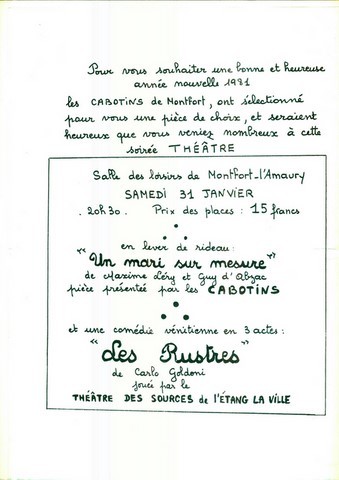 Pour vous souhaiter une bonne et heureuse
année nouvelle 1981
les CABOTINS de Montfort, ont sélectionné
pour vous une pièce de choix, et seraient
heureux que vous veniez nombreux à cette
soirée THÉÂTRE
Salle des loisirs de Montfort-l'Amaury
SAMEDI 31 JANVIER
20h30. Prix des places : 15 francs
en lever de rideau :
"Un mari sur mesure"
de Maxime Léry et Guy d'Abzac
pièce présentée par les CABOTINS
et une comédie vénitienne en 3 actes :
"Les Rustres"
de Carlo Goldoni
jouée par le
THÉÂTRE DES SOURCES de L'ÉTANG LA VILLE